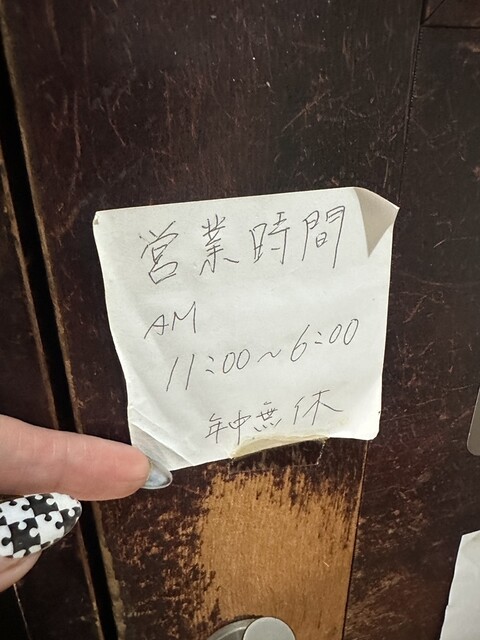 営業時間
AM
11:00~6:00
年中無休